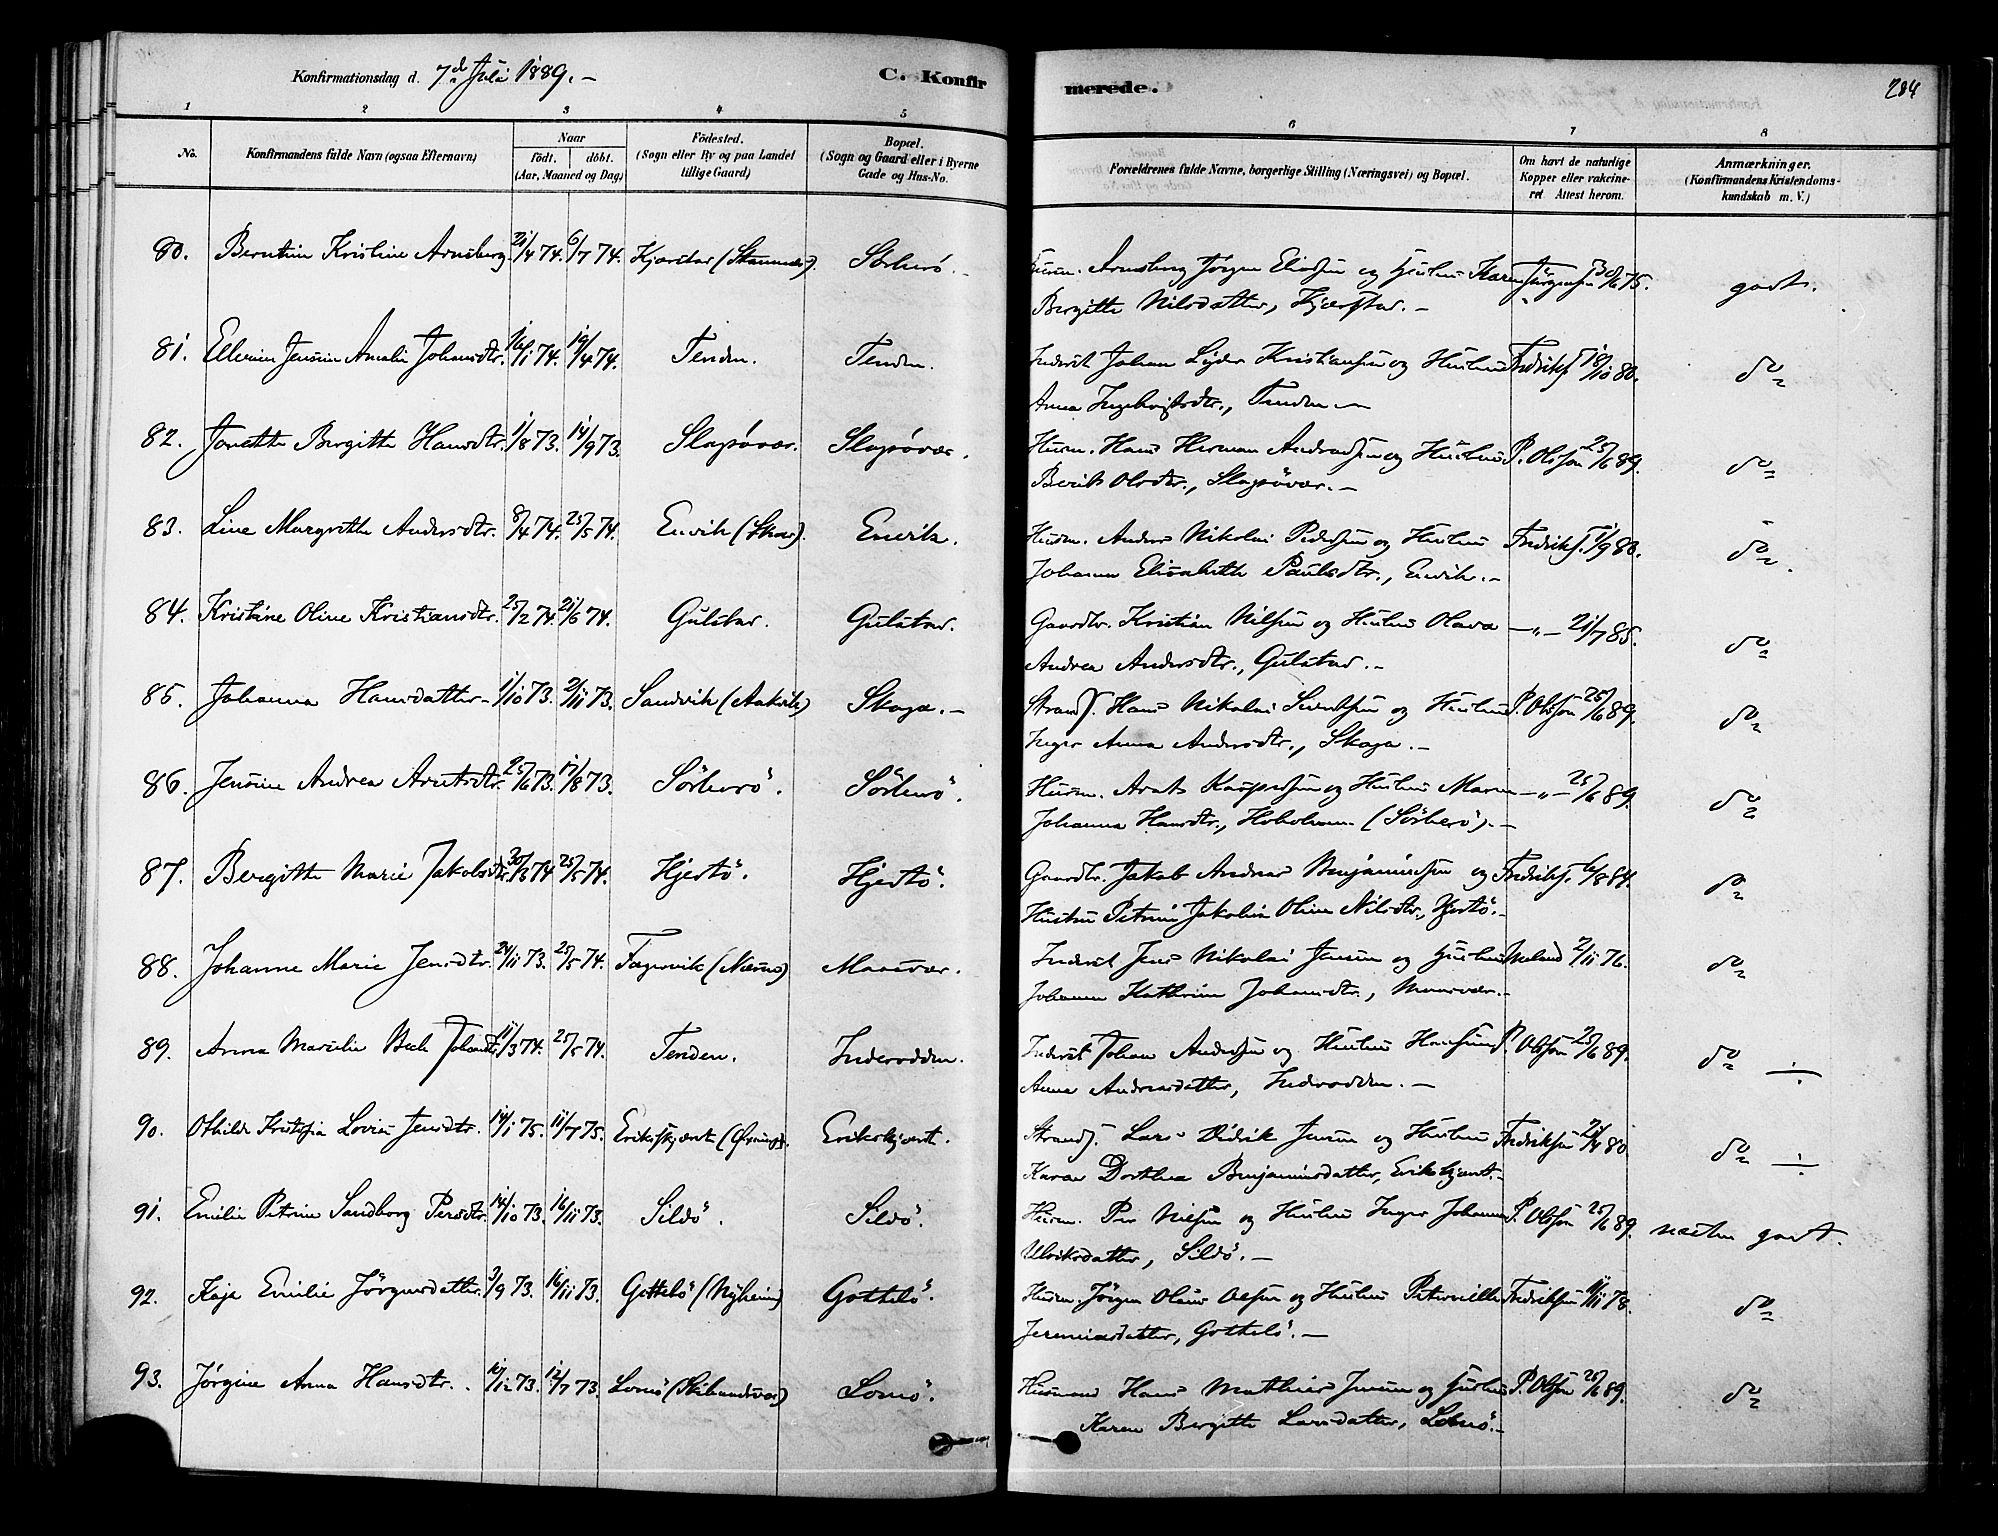 Konfirmationsdag d. 7d Juli 1889. –
C. Konfirmerede.
284
1 2 3 4 5 6 7 8
No.
Konfirmandens fulde Navn (ogsaa Efternavn)
Naar
født. døbt.
(Aar, Maaned og Dag)
Födested.
(Sogn eller By og paa Landet
tillige Gaard)
Bopæl.
(Sogn og Gaard eller i Byerne
Gade og Hus-No.
Forældrenes fulde Navne, borgerlige Stilling (Næringsvei) og Bopæl.
Om havt de naturlige
Kopper eller vakcine-
ret Attest herom.
Anmærkninger.
(Konfirmandens Kristendoms-
kundskab m. V.)
80. Berntine Kristine Arnsberg 21/4 74. 6/7 74. Kjærstar Sörherö. Husm. Arnsberg Jörgen Eliassen og Hustru Karen Jörgensen 30/6 75. godt.
Bergitte Nilsdatter, Kjærstar. –
81. Ellerine Jensine Amalie Johansdtr. 16/1 74. 19/4 74. Tenden. Tenden. Inderst Johan Lyder Kristiansen og Hustru Fredriks. 18/10 80. do
Anna Ingebrigtsdtr., Tenden –
82. Jonette Bergitte Hansdtr. 1/8 73. 14/9 73. Slapövær. Slapövær. Husm. Hans Herman Andreassen og Hustru P. Olsson 25/6 89. do
Berit Olsdtr., Slapövær. –
83. Line Margrethe Andersdtr. 8/4 74. 25/5 74. Envik Envik. Husm. Anders Nikolai Pedersen og Hustru Fredriks. 1/9 80. do.
Johanna Elisabeth Paulsdtr., Envik. –
84. Kristine Oline Kristiansdtr. 25/2 74. 21/6 74. Gulstar. Gulstar. Gaardbr. Kristian Nilsen og Hustru Olava –„– 21/7 85. do
Andrea Andersdtr., Gulstar. –
85. Johanna Hansdatter – 1/10 73. 2/11 73. Sandvik (Aakvik) Skaga. – Strands. Hans Nikolai Svendsen og Hustru P. Olsson 25/6 89. do
Inger Anna Andersdtr., Skaga. –
86. Jensine Andrea Arntsdtr. 25/6 73. 17/8 73. Sörherö. Sörherö. Husm. Arnt Kaspersen og Hustru Maren –„– 25/6 89. do
Johanna Hansdtr., Hoholmen (Sörherö). –
87. Bergitte Marie Jakobsdtr. 30/3 74 25/5 74. Hjertö. Hjertö. Gaardbr. Jakob Andreas Benjaminsen og Fredriks. 6/8 84. do
Hustru Petrine Jakobine Oline Nilsdtr., Hjertö. –
88. Johanne Marie Jensdtr. 24/11 73. 25/5 74. Fagervik Maasvær. Inderst Jens Nikolai Jensen og Hustru 2/11 76. do
Johanna Kathrine Johansdtr., Maasvær. –
89. Anna Marselie Bech Johansdtr. 11/3 74. 25/5 74. Tenden. Inderodden. Inderst Johan Andersen og Hustru P. Olsson 25/6 89. do ÷
Anna Andreasdatter, Inderodden. –
90. Othilde Kristofia Lovise Jensdtr. 14/1 75. 11/7 75. Erikskjært Erikskjært. Strands. Lars Didrik Jensen og Hustru Fredriksen 21/4 80. do ÷
Karen Dorthea Benjaminsdatter, Erikskjært. –
91. Emilie Petrine Sandborg Persdtr. 14/10 73. 16/11 73. Sildö. Sildö. Husm. Per Nielsen og Hustru Inger Johanna P. Olsson 25/6 89. næsten godt.
Ulriksdatter, Sildö. –
92. Kaja Emilie Jörgensdatter. 3/9 73. 16/11 73. Gottelö (Nyheim) Gottelö. Husm. Jörgen Olaus Olsen og Hustru Peternille Fredriksen 11/11 78. do
Jeremiasdatter, Gottelö. –
93. Jörgine Anna Hansdtr. 10/12 73. 12/7 73. Lomö Lomö. Husmand Hans Mathias Jensen og Hustru P. Olsson 25/6 89. do
Karen Bergitte Larsdatter, Lomö. –